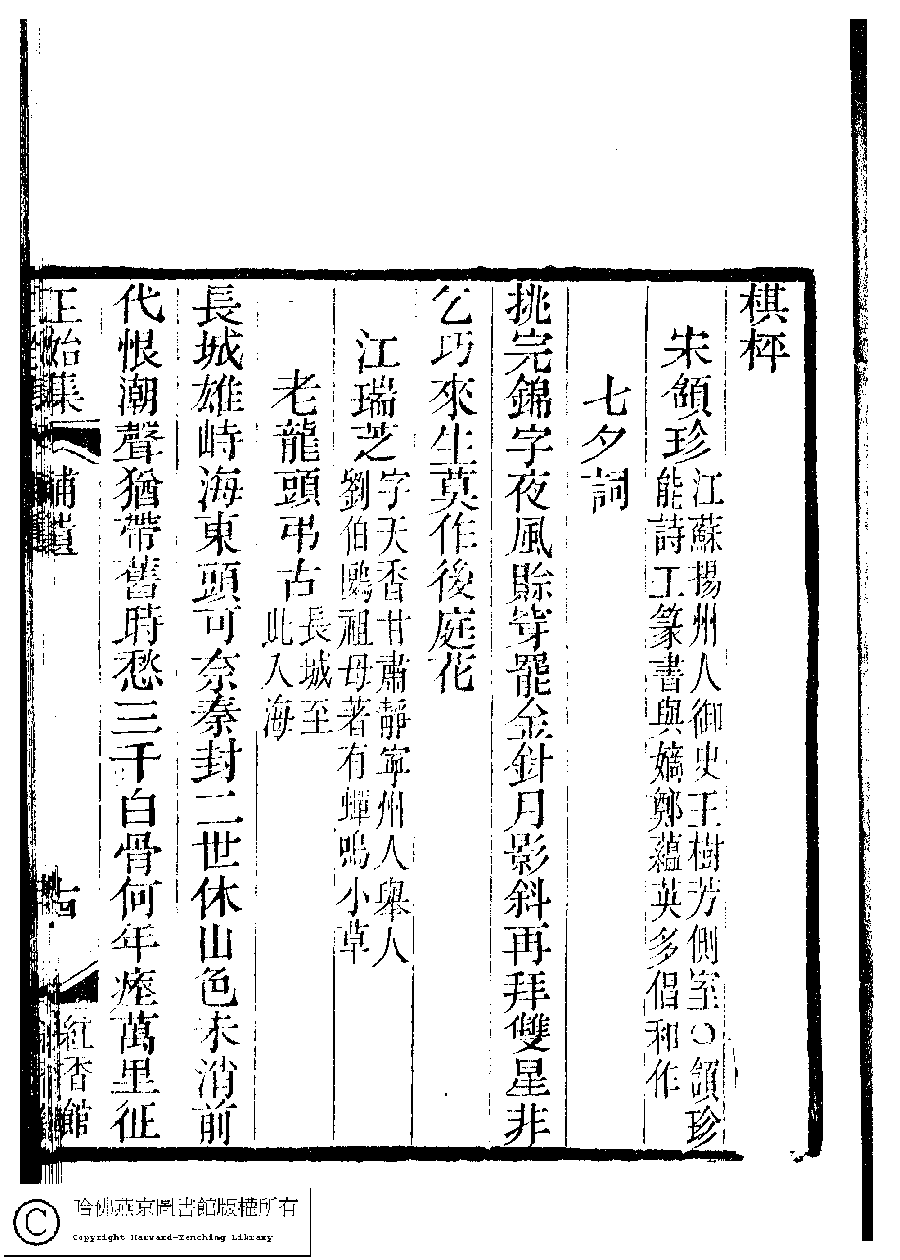 棋枰
宋頷珍
江蘇揚州人御史王樹芳側室○頷珍
能詩工篆書與嫡鄭蘊英多倡和作
七夕詞
挑完錦字夜風賒穿罷金針月影斜再拜雙星非
乞巧來生莫作後庭花
江瑞芝
字天香甘肅靜寧州人舉人
劉伯鷗祖母著有蟬鳴小草
老龍頭弔古
長城至
此入海
長城雄峙海東頭可奈秦封二世休山色未消前
代恨潮聲猶帶舊時愁三千白骨何年瘞萬里征
正始集
補遺
古
紅香館
哈佛燕京圖書館版權所有
Copyright Harvard-Yenching Library